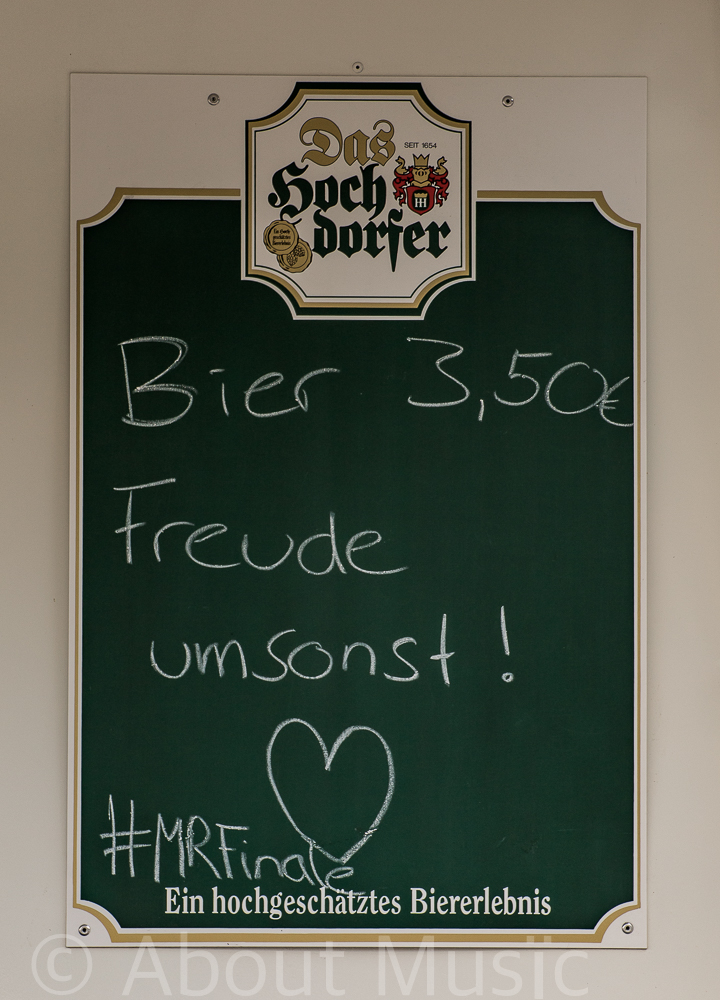 Das
SEIT 1654
Hoch
dorfer
Bier 3,50€
Freude
umsonst!
#MRFinale
Ein hochgeschätztes Biererlebnis
© About Music